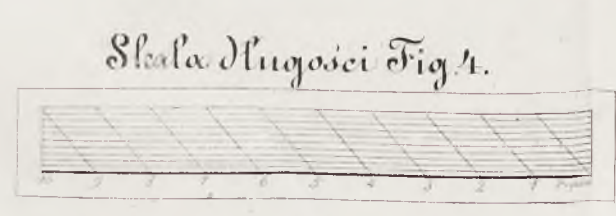 Skala Długości Fig. 4.
10 9 8 7 6 5 4 3 2 1